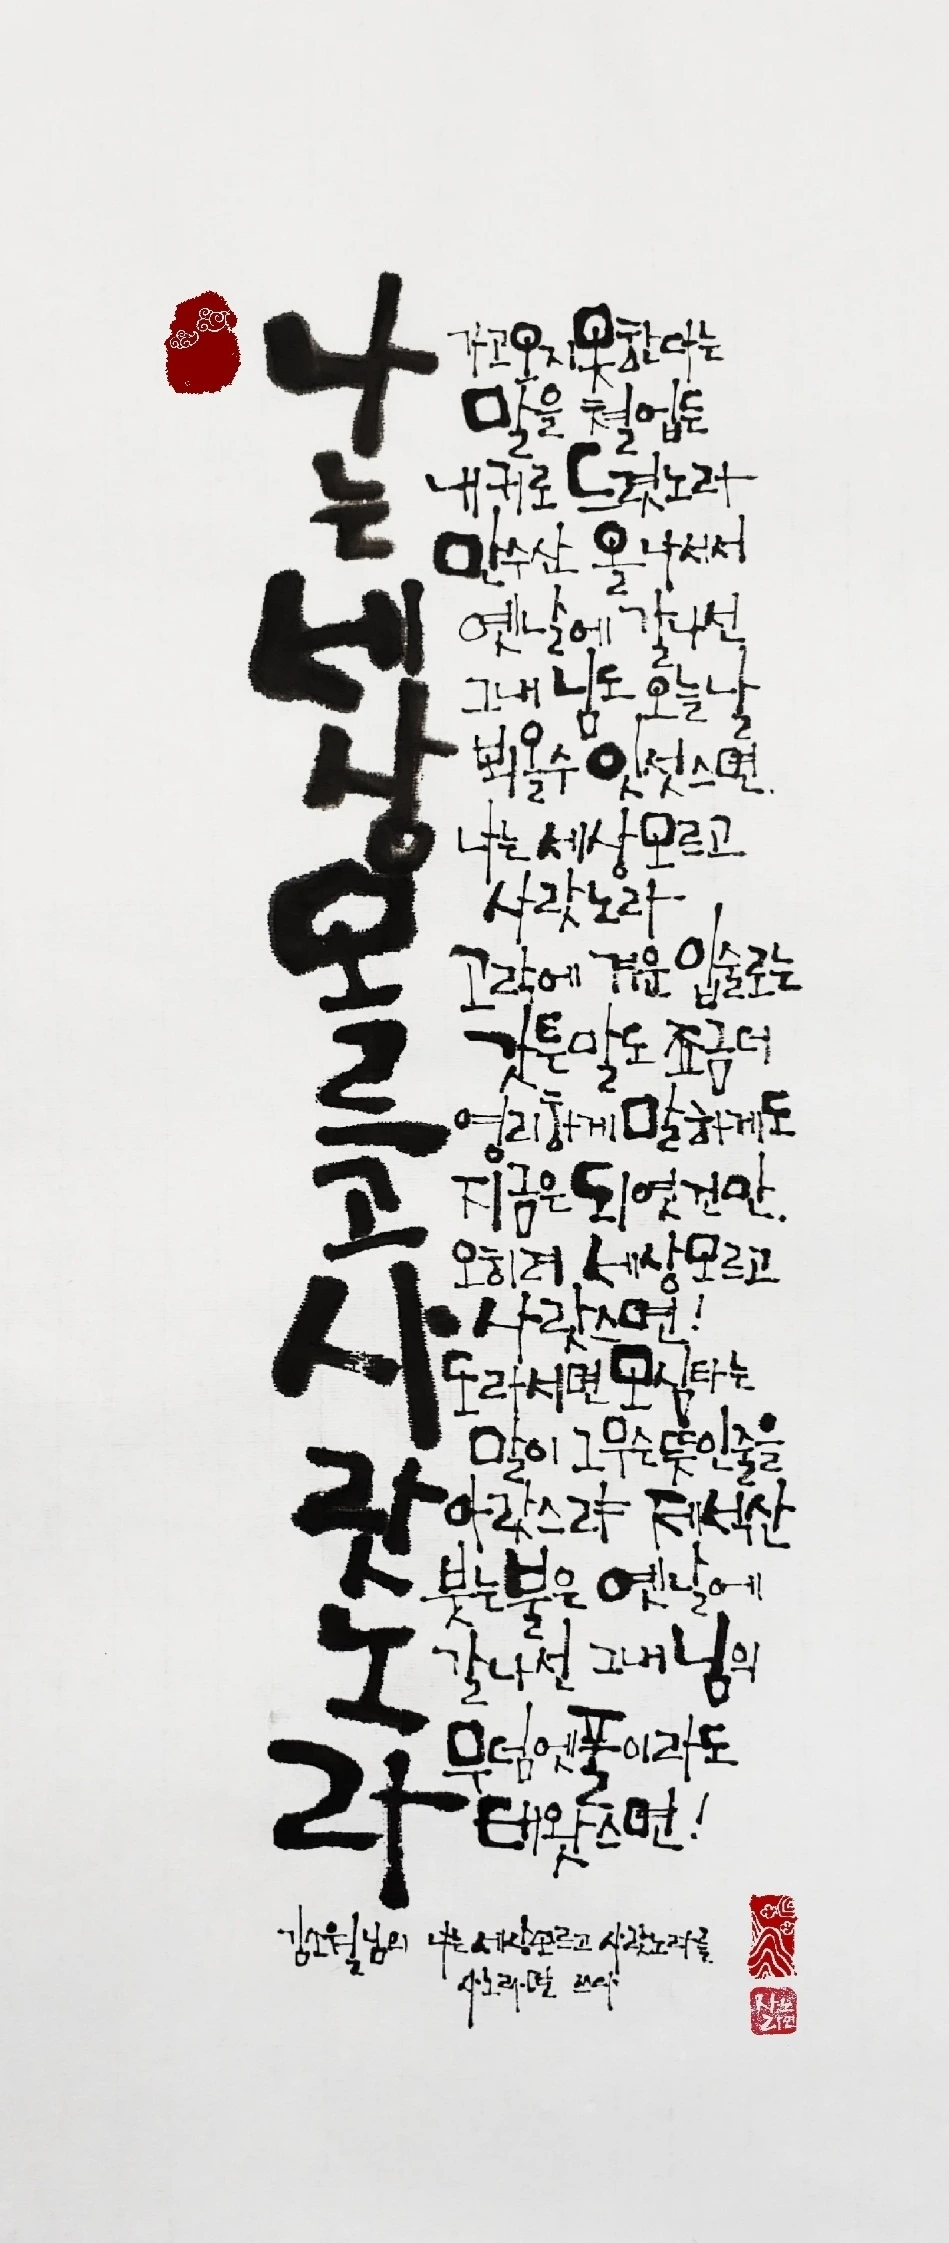 나는세상모르고사랏노라
가고오지못한다는
말을 철업든
내귀로 드럿노라
만수산 올나서서
옛날에 갈나선
그내님도 오늘날
뵈올수 잇섯스면.
나는 세상모르고
사랏노라
고락에 겨운 입술로는
갓튼말도 죠금더
영리하게말하게도
지금은되엿건만.
오히려 세상모르고
사랏스면!
도라서면 모심타는
말이 그무슨뜻인줄을
아랏스랴 제석산
붓는불은 옛날에
갈나선 그내님의
무덤엣풀이라도
태왓스면!
김소월님의 나는세상모르고 사랏노라를
쓰다